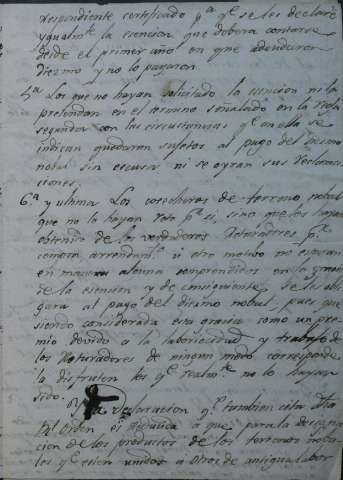 respondiente certificado pª qᵉ se les declare
ygualmᵗᵉ la esencion, que debera contarse
desde el primer año en que adeudaron
Diezmo y no lo pagaron
5ª Los que no hayan solicitado la esencion ni la
pretendan en el termino señalado en la regla
segunda con las circustancias qᵉ en ella se
indican quedaran sujetos al pago del Diesmo
nobal sin escusa ni se oyran sus declama
ciones.
6ª y ultima Los cosecheros de terreno nobal
que no lo hayan roto pʳ si, sino que los hayan
obtenido de los verdaderos Roturadores pʳ
compra arrendamᵗᵒ u otro motibo no esten
en manera alguna comprendidos en la gracia
de la esencion y de consiguiente se les obli
gara al pago del diesmo nobal, pues que
siendo considerada esta gracia como un pre
mio devido a la laboriosidad y trabajo de
los Roturadores de ningun modo corresponde
la disfruten los qᵉ realmᵗᵉ no lo hayan
sido.
declaracion qᵉ tambien cita dha
Rˡ Orden es relatiba a que para la
cion de los productos de los terrenos noba
les qᵉ esten unidos a otros de antigua labor